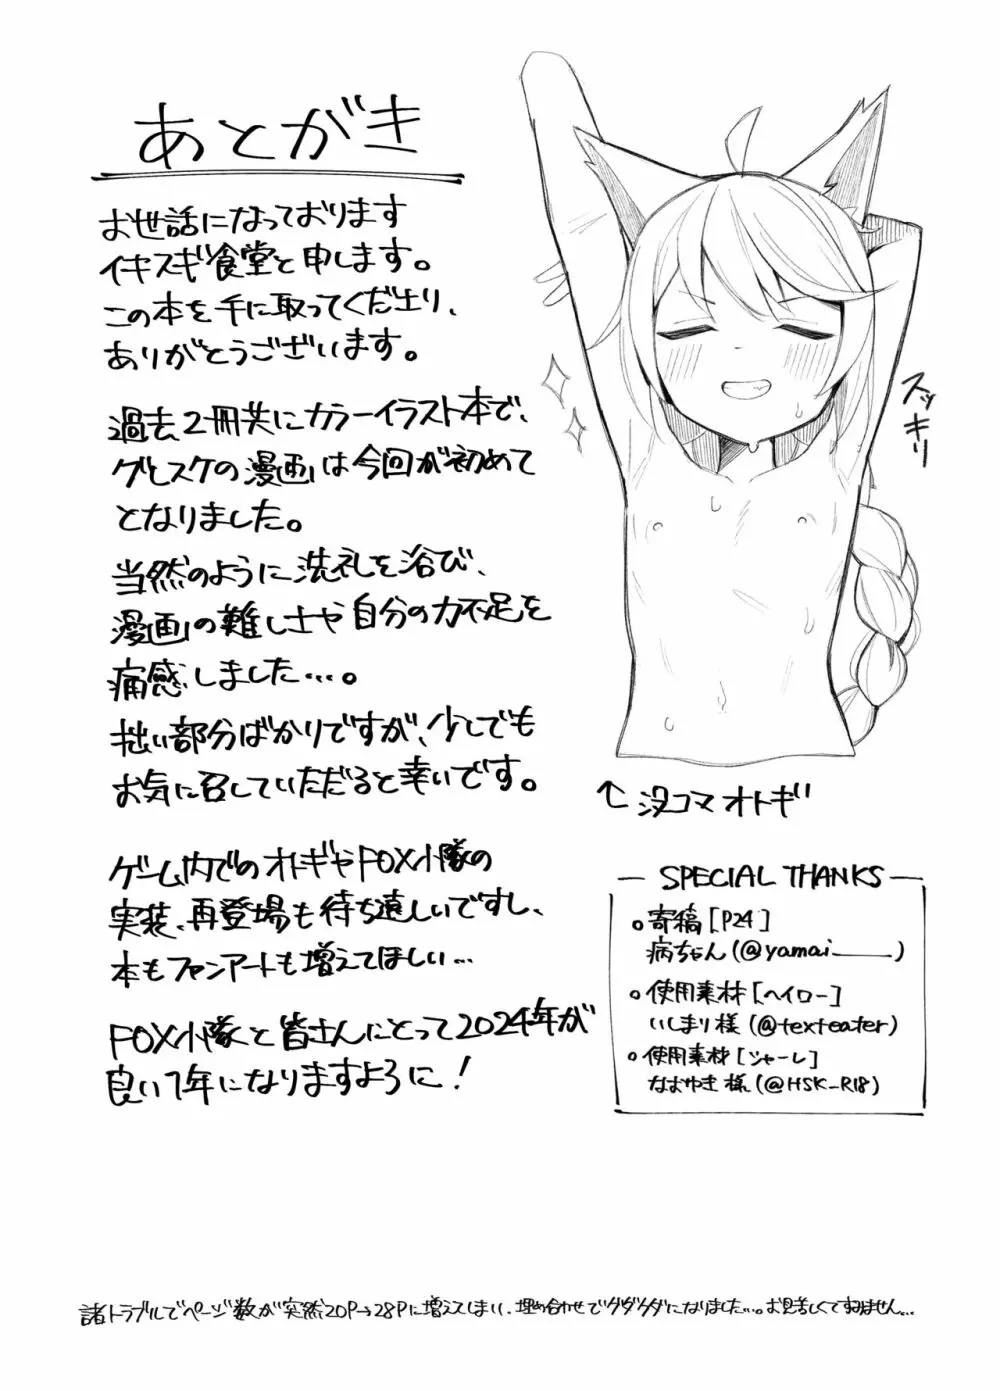 あとがき
お世話になっております
イキスギ食堂と申します。
この本を手に取ってくださり、
ありがとうございます。
過去2冊共にカラーイラスト本で、
グレスケの漫画は今回が初めて
となりました。
当然のように洗礼を浴び、
漫画の難しさや自分の力不足を
痛感しました…。
拙い部分ばかりですが、少しでも
お気に召していただだると幸いです。
ゲーム内でのオトギやFOX小隊の
実装、再登場も待ち遠しいですし、
本もファンアートも増えてほしい…
FOX小隊と皆さんにとって2024年が
良い1年になりますように！
スッキリ
↑没コマオトギ
SPECIAL THANKS
○寄稿[P24]
病ちゃん(@yamai____)
○使用素材[ヘイロー]
いしまり様(@texteater)
○使用素材[シャーレ]
なおゆき様(@HSK_R18)
諸トラブルでページ数が突然20P→28Pに増えてしまい、埋め合わせでグダグダになりました…。お見苦しくてすみません…